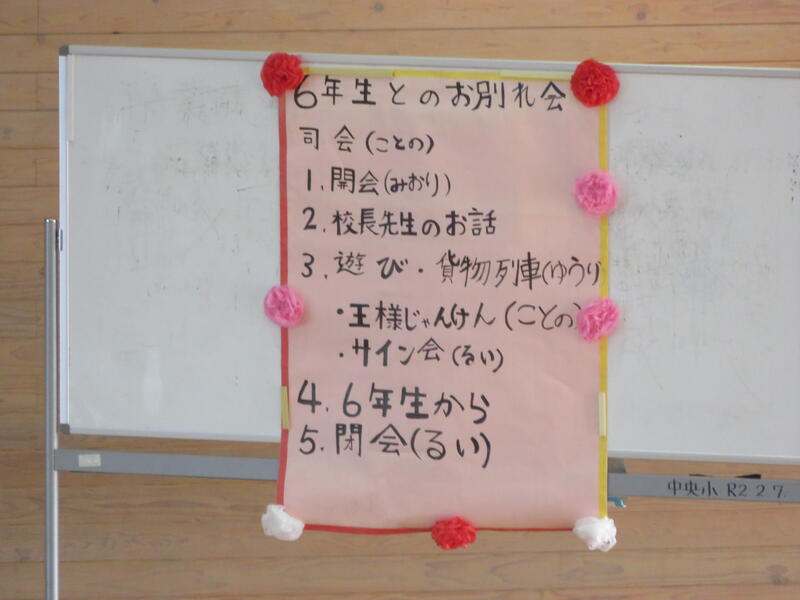 6年生とのお別れ会
司会(ことの)
1.開会(みおり)
2.校長先生のお話
3.遊び・貨物列車(ゆうり
・王様じゃんけん(ことの)
・サイン会(るい)
4.6年生から
5.閉会(るい)
中央小 R2 2 7